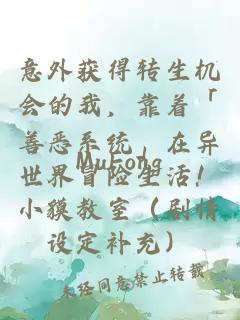 意外获得转生机
会的我，靠着「
善恶系统」在异
世界冒险生活！
MuFong
小貘教室（剧情
设定补充）
未经同意禁止转载